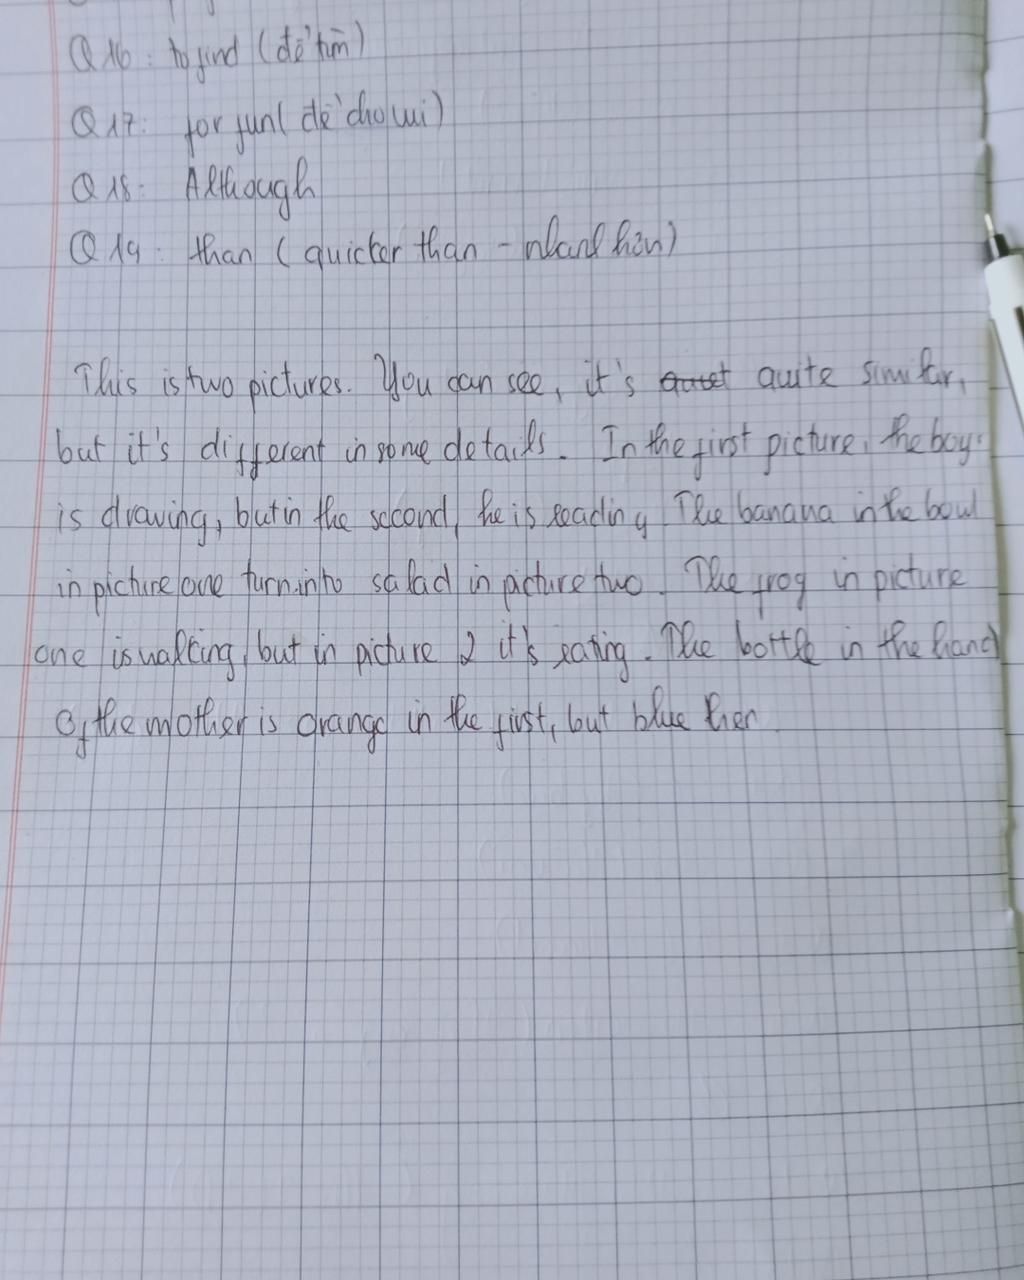 Q 16 : to find (để tìm)
Q 17 : for fun ( để cho vui)
Q 18 : Although
Q 19 : than ( quicker than - nhanh hơn)
This is two pictures. You can see, it's quite similar,
but it's different in some details. In the first picture, the boy
is drawing, but in the second, he is reading. The banana in the bowl
in picture one turn into salad in picture two. The frog in picture
one is walking, but in picture 2 it's eating. The bottle in the hand
Of the mother is orange in the first, but blue